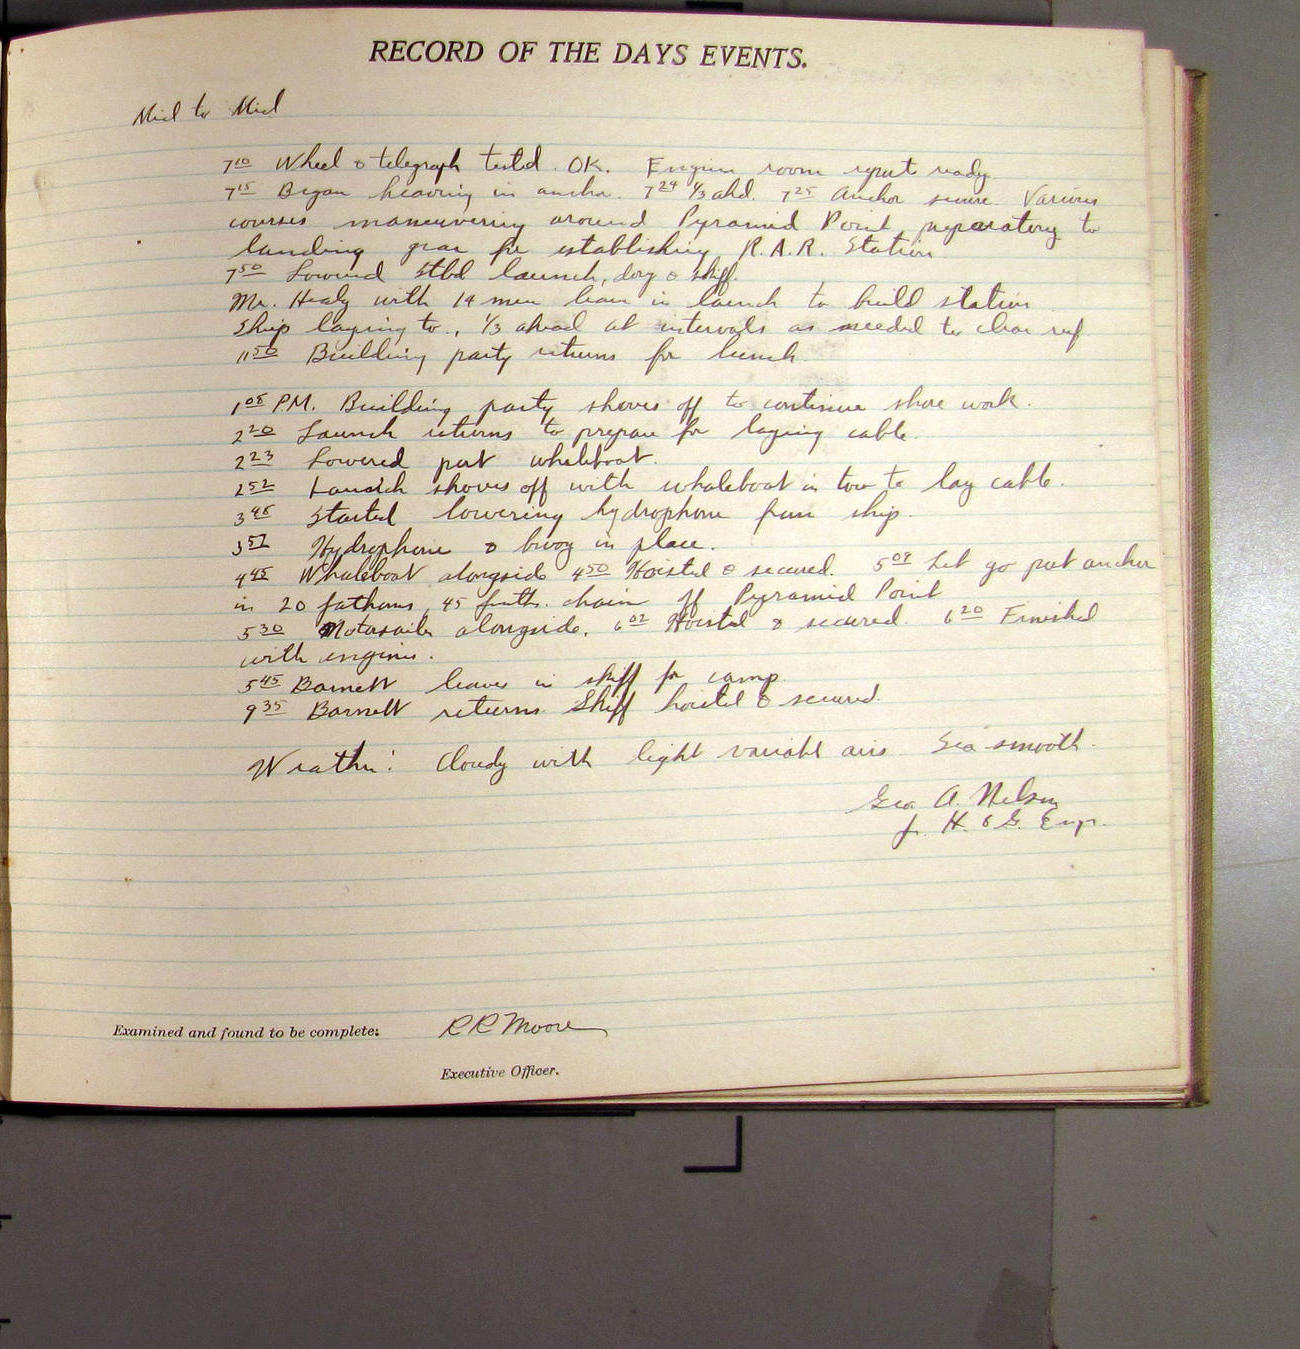 RECORD OF THE DAYS EVENTS.
Mid to Mid
7 10 Wheel & telegraph tested. OK. Engine room report ready
7 15 Began heaving in anchor. 7 24 1/3 ahd. 7 25 Anchor secure. Various
courses maneuvering around Pyramid Point preparatory to
landing gear for establishing R.A.R. Station.
7 50 Lowered Stbd launch, dory & skiff.
Mr. Healy with 14 men leave in launch to build station
Ship laying to, 1/3 ahead at intervals as needed to clear reef
11 50 Building party returns for lunch.
1 08 P.M. Building party shoves off to continue shore work.
2 20 Launch returns to prepare for laying cable.
2 23 Lowered port whaleboat.
2 52 Launch shoves off with whaleboat in tow to lay cable.
3 48 Started lowering hydrophone from ship.
3 57 Hydrophone & buoy in place.
4 45 Whaleboat alongside 4 50 Hoisted & secured. 5 09 Let go port anchor
in 20 fathoms, 45 fmths. chain off Pyramid Point
5 30 Motorsailer alongside. 6 02 Hoisted & secured. 6 20 Finished
with engines.
5 45 Barnett leaves in skiff for camp.
9 35 Barnett returns Skiff hoisted & secured.
Weather: Cloudy with light variable airs Sea smooth.
Geo. A. Nelson
Jr. H. & G. Engr.
Examined and found to be complete: R R Moore
Executive Officer.